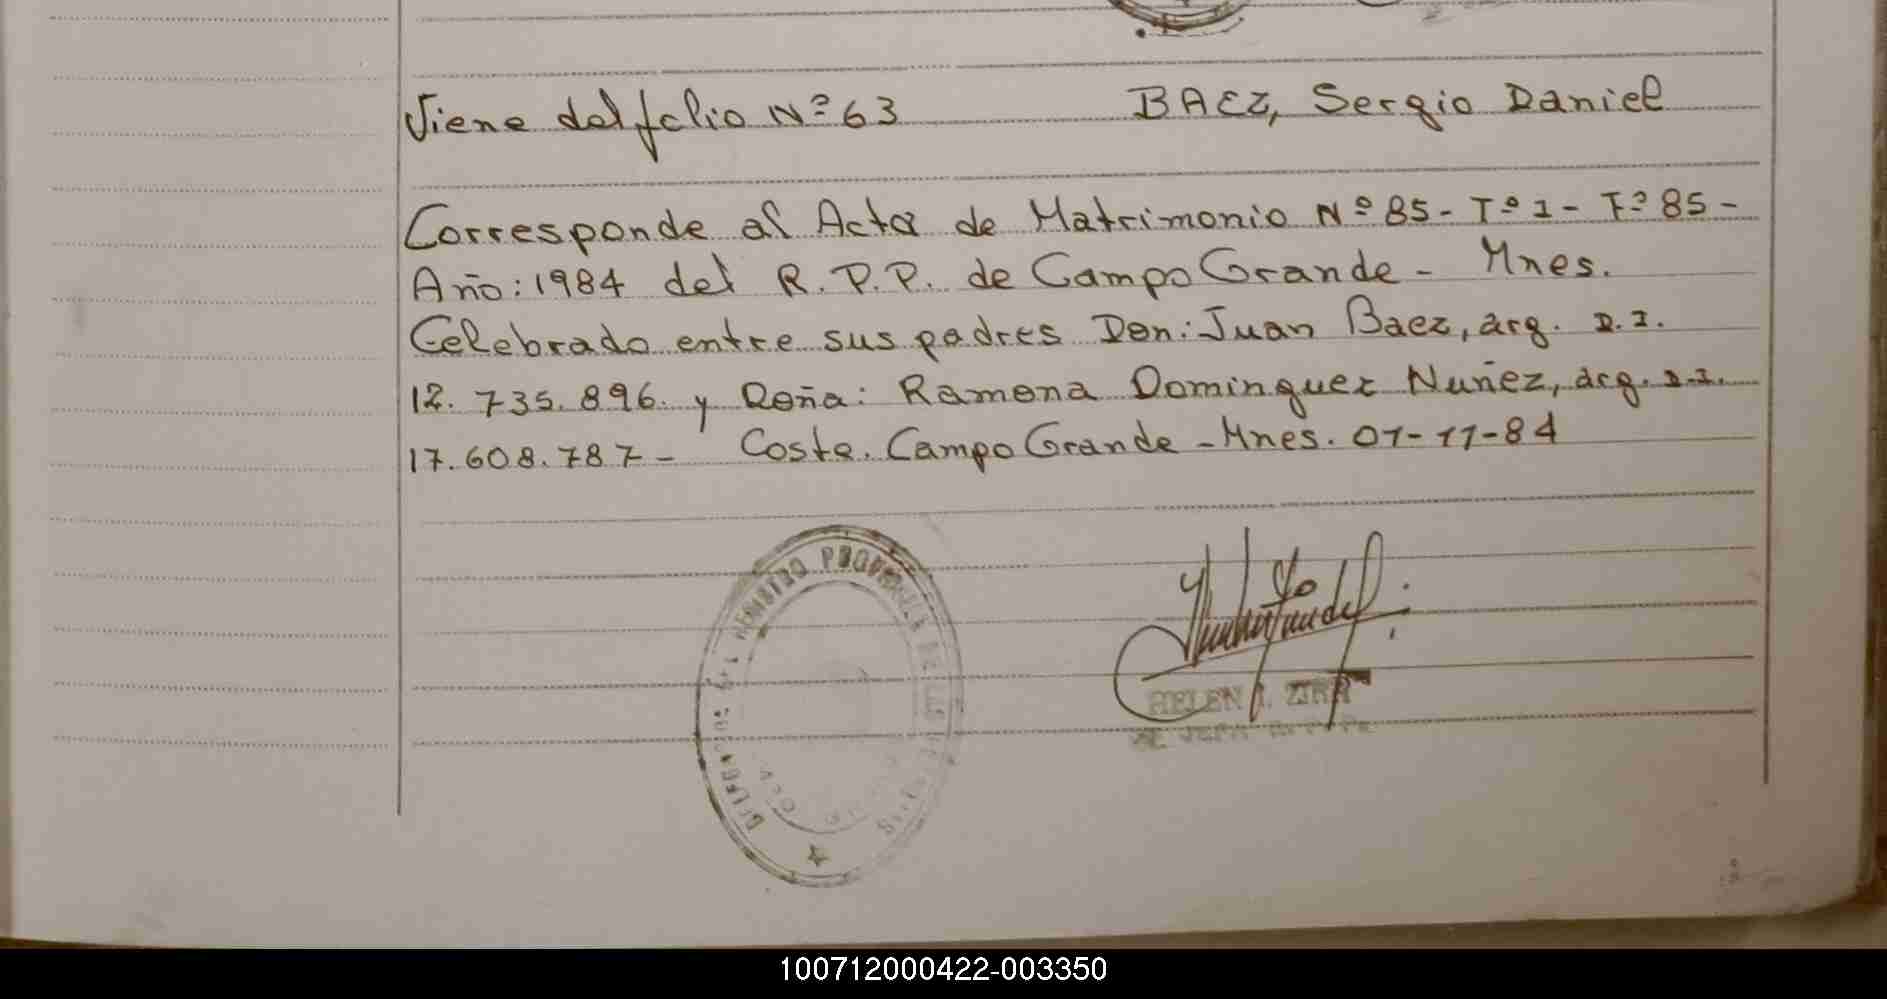 Viene del folio Nº 63 BAEZ, Sergio Daniel
Corresponde al Acta de Matrimonio Nº 85 - Tº 1 - Fº 85 -
Año: 1984 del R.P.P. de Campo Grande - Mnes.
Celebrado entre sus padres Don: Juan Baez, arg. D.I.
12.735.896. y Doña: Ramona Dominguez Nuñez, arg. D.I.
17.608.787 - Coste. Campo Grande - Mnes. 01-11-84
REGISTRO PROVINCIAL DE LAS
HELEN
100712000422-003350